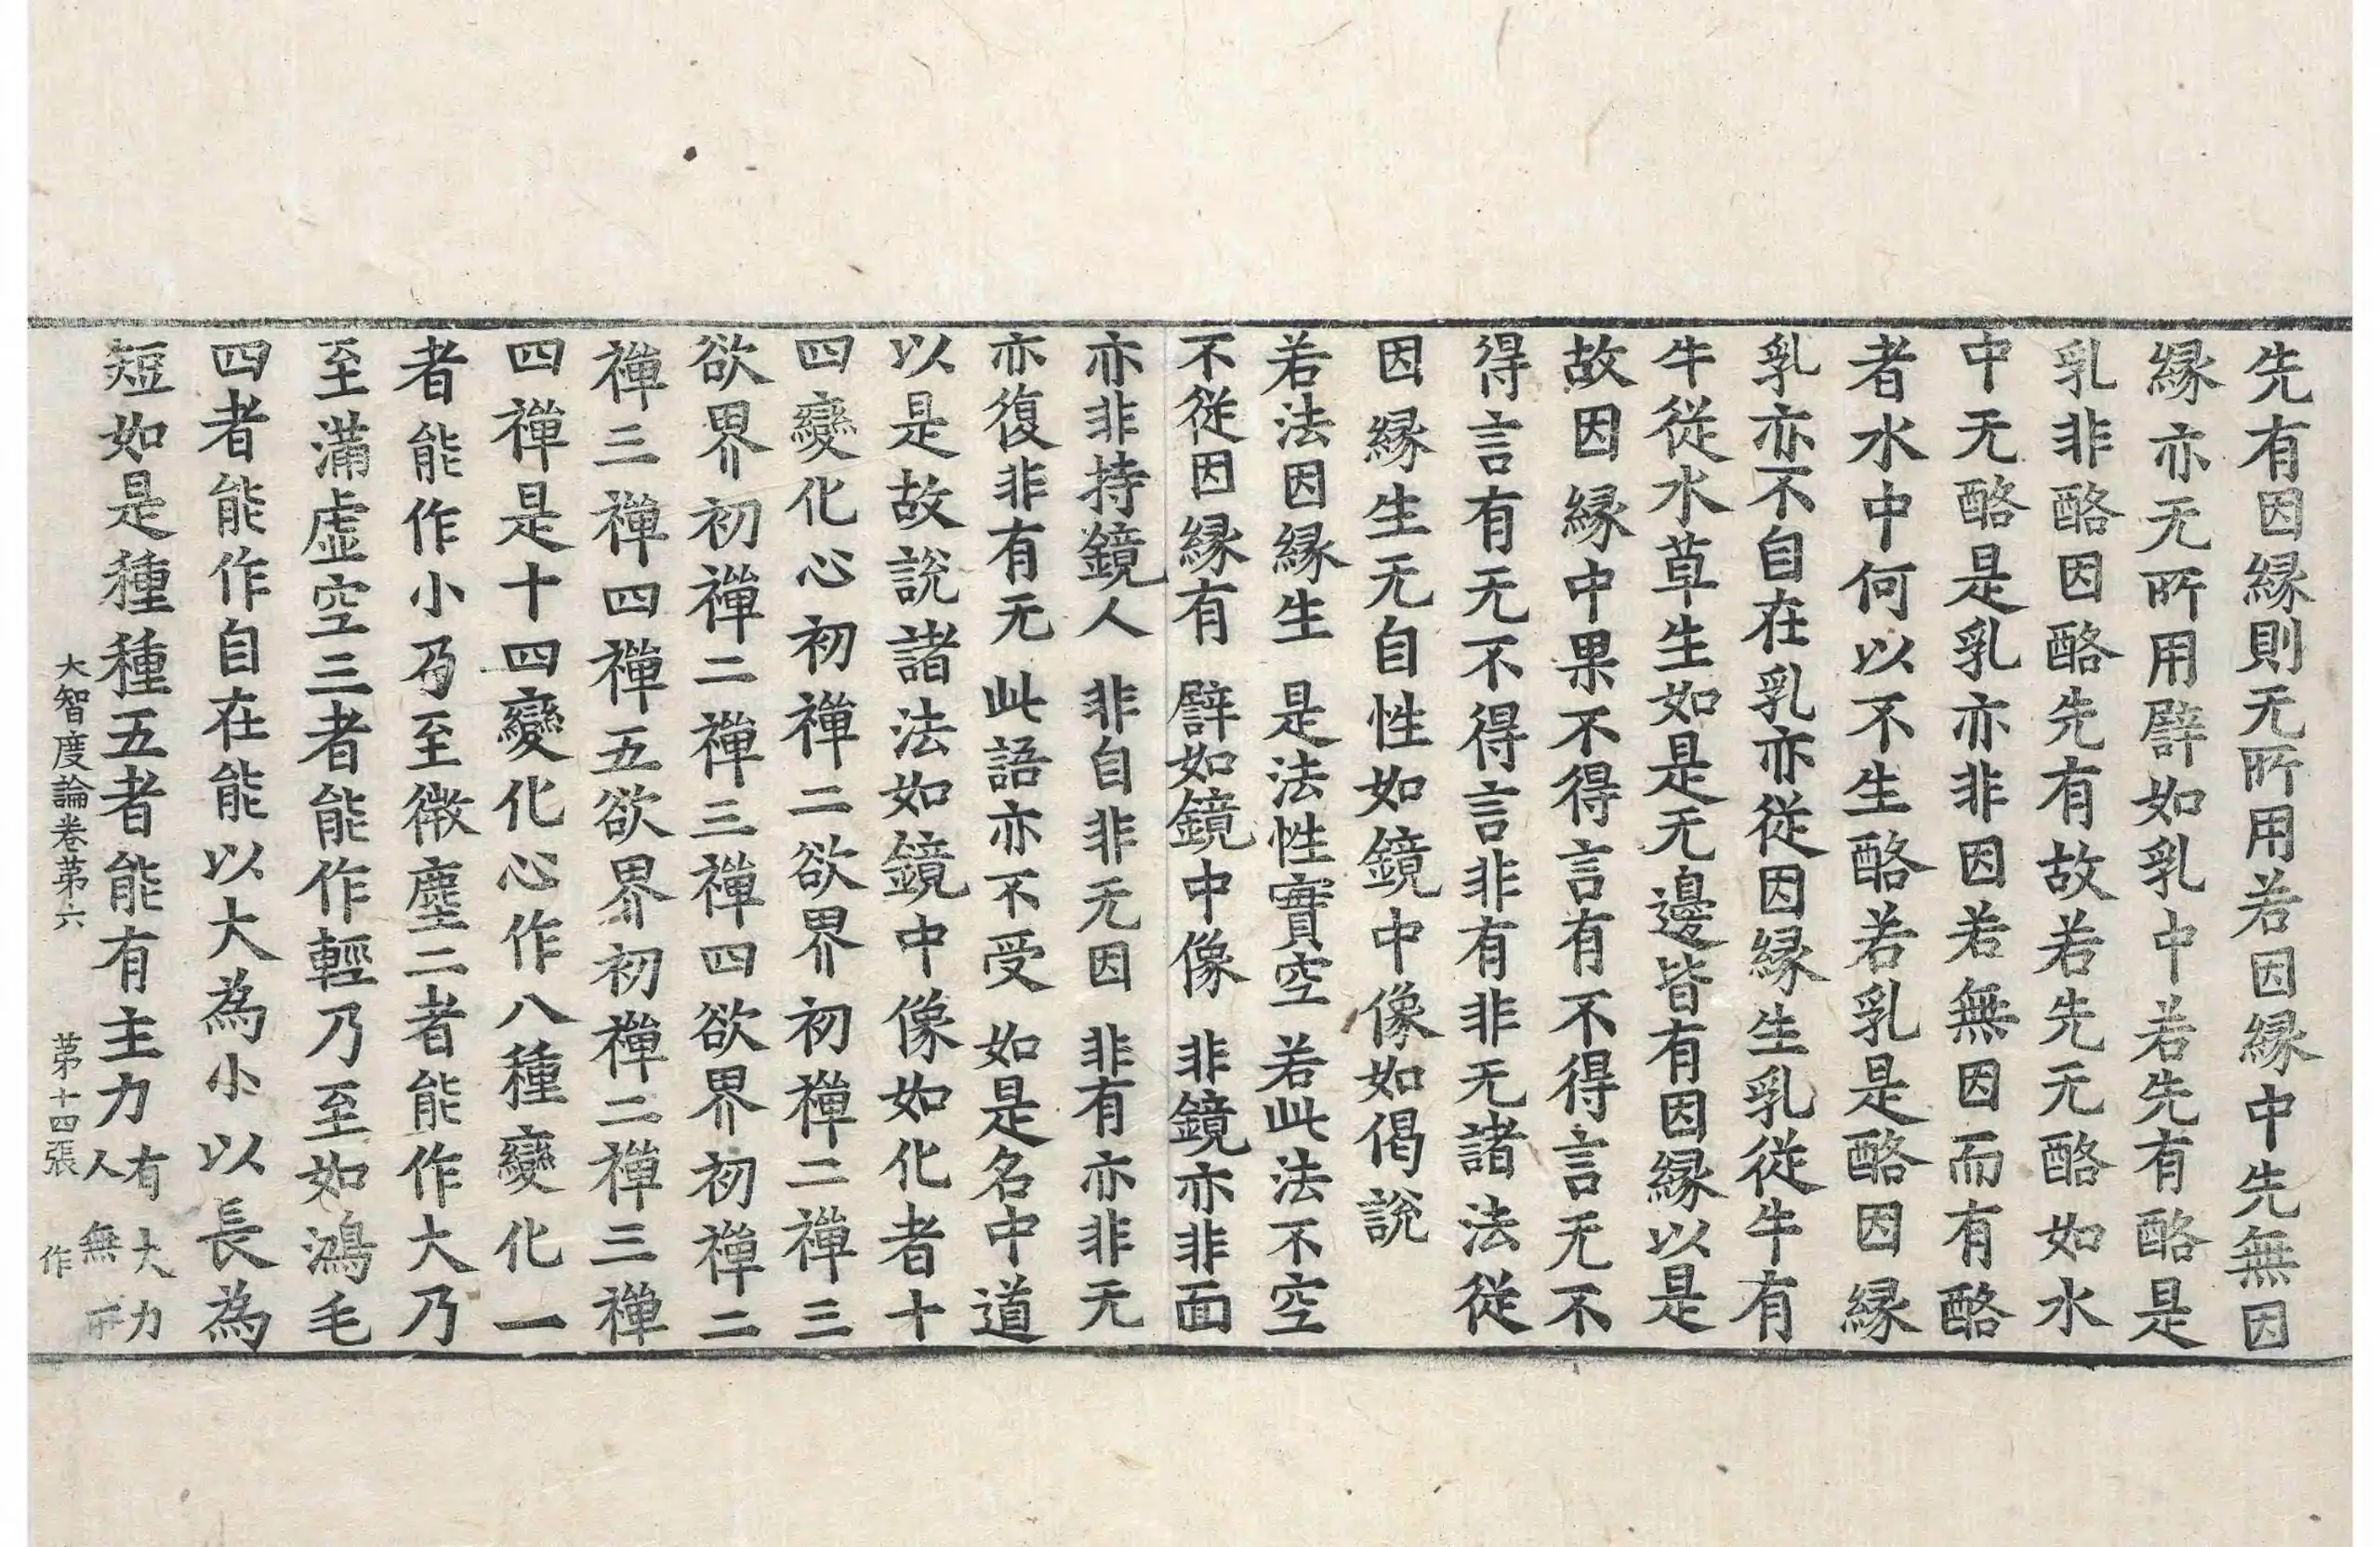 先有因縁則无所用若因縁中先無因
縁亦无所用譬如乳中若先有酪是
乳非酪因酪先有故若先无酪如水
中无酪是乳亦非因若無因而有酪
者水中何以不生酪若乳是酪因縁
乳亦不自在乳亦從因縁生乳從牛有
牛從水草生如是无邊皆有因縁以是
故因縁中果不得言有不得言无不
得言有无不得言非有非无諸法從
因縁生无自性如鏡中像如偈説
若法因縁生 是法性實空 若此法不空
不從因縁有 譬如鏡中像 非鏡亦非面
亦非持鏡人 非自非无因 非有亦非无
亦復非有无 此語亦不受 如是名中道
以是故説諸法如鏡中像如化者十
四變化心初禪二欲界初禪二禪三
欲界初禪二禪三禪四欲界初禪二
禪三禪四禪五欲界初禪二禪三禪
四禪是十四變化心作八種變化一
者能作小乃至微塵二者能作大乃
至滿虛空三者能作輕乃至如鴻毛
四者能作自在能以大為小以長為
短如是種種五者能有主力有大力
人無所
大智度論卷苐六 苐十四張 作